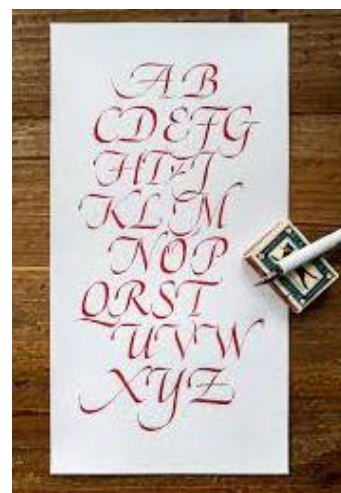 AB
CDEFG
HIJ
KLM
NOP
QRST
UVW
XYZ